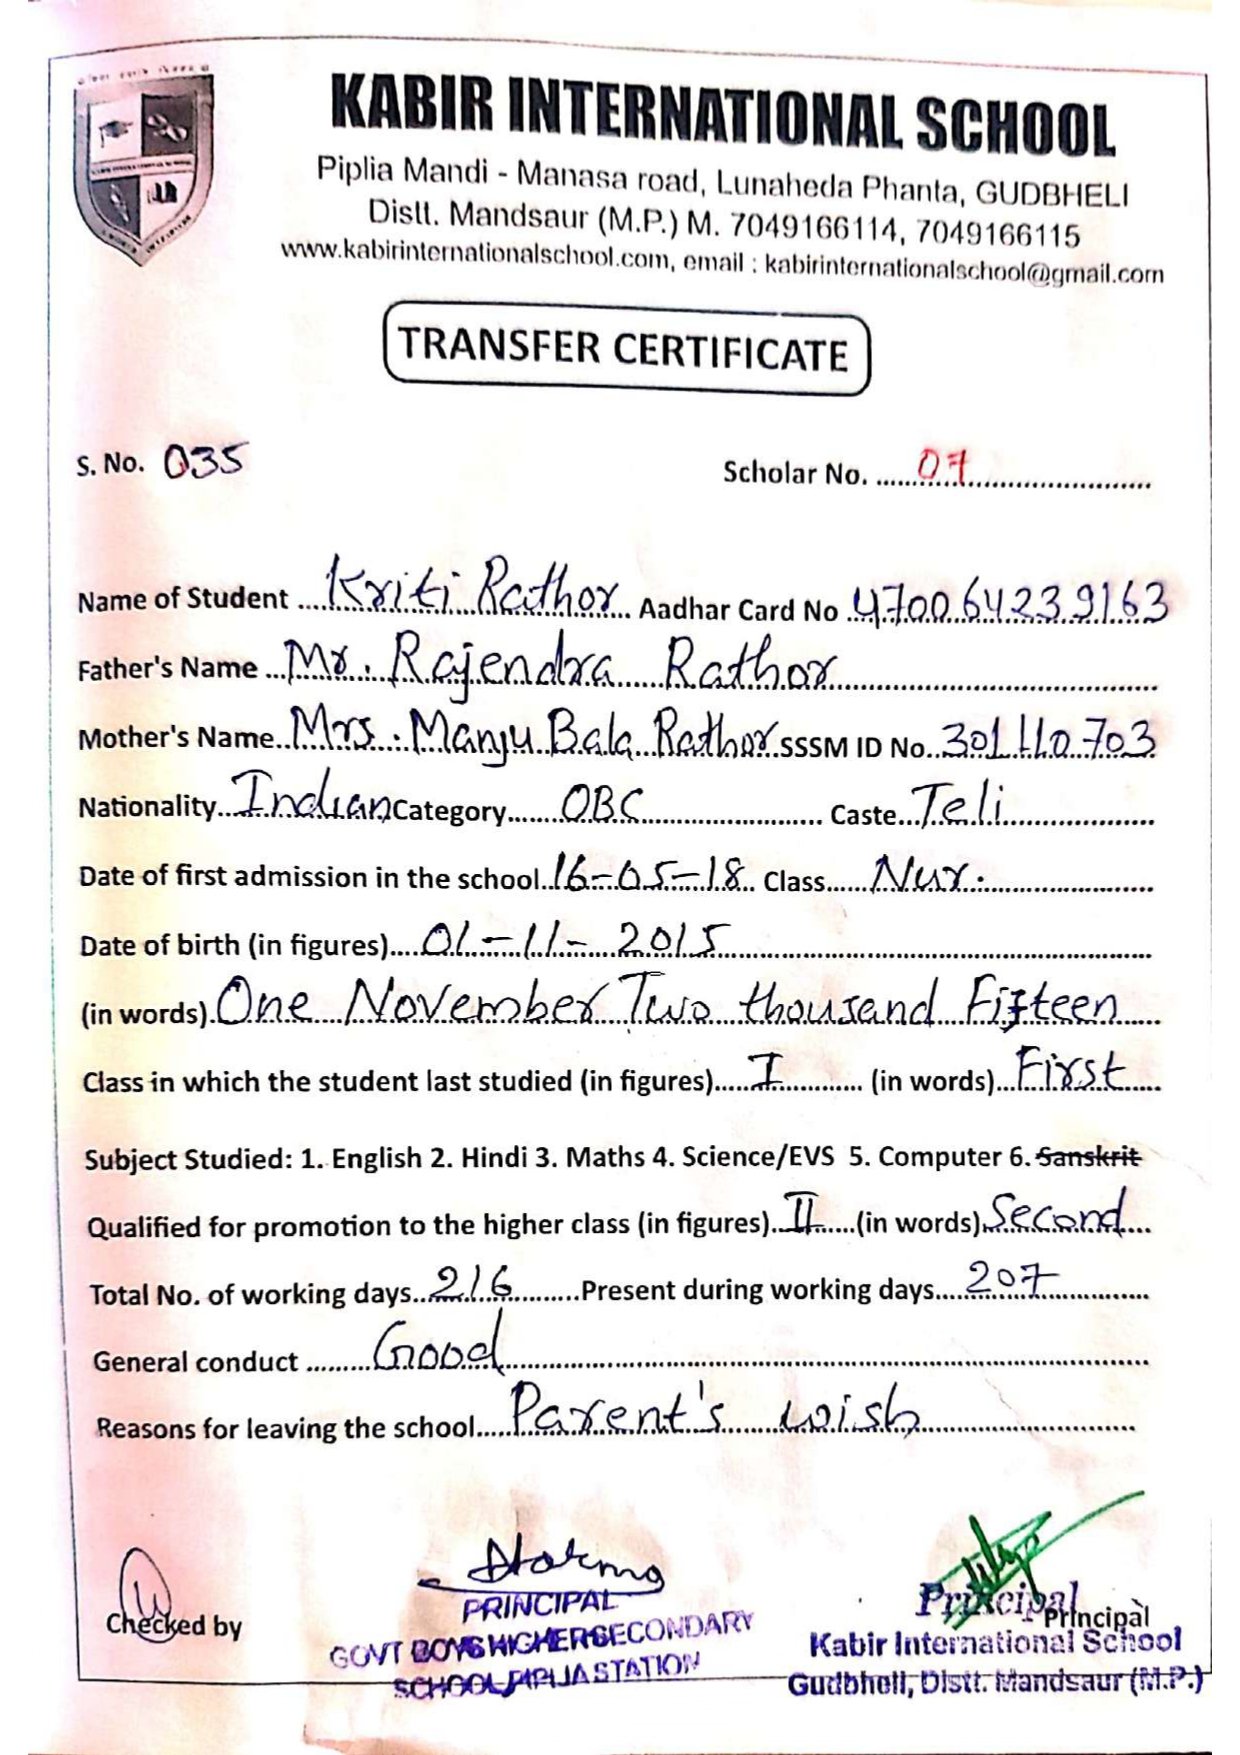 KABIR INTERNATIONAL SCHOOL
Piplia Mandi - Manasa road, Lunaheda Phanta, GUDBHELI
Distt. Mandsaur (M.P.) M. 7049166114, 7049166115
www.kabirinternationalschool.com, email : kabirinternationalschool@gmail.com
TRANSFER CERTIFICATE
S. No. 035
Scholar No. 07
Name of Student Kriti Rathor Aadhar Card No 470064239163
Father's Name Mr. Rajendra Rathor
Mother's Name Mrs. Manju Bala Rathor SSSM ID No. 301110703
Nationality Indian Category OBC Caste Teli
Date of first admission in the school 16-05-18 Class Nur.
Date of birth (in figures) 01-11-2015
(in words) One November Two thousand Fifteen
Class in which the student last studied (in figures) I (in words) First
Subject Studied: 1. English 2. Hindi 3. Maths 4. Science/EVS 5. Computer 6. Sanskrit
Qualified for promotion to the higher class (in figures) II (in words) Second
Total No. of working days 216 Present during working days 207
General conduct Good
Reasons for leaving the school Parent's wish
Checked by
PRINCIPAL
GOVT BOYS HIGHER SECONDARY
SCHOOL PIPLIA STATION
Principal
Principal
Kabir International School
Gudbheli, Distt. Mandsaur (M.P.)